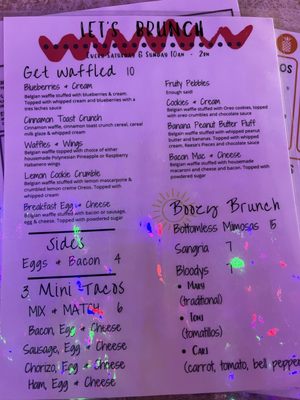 LET'S BRUNCH
EVERY SATURDAY & SUNDAY 10AM - 2PM
Get Waffled 10
Blueberries & Cream
Belgian waffle stuffed with blueberries & cream.
Topped with whipped cream and blueberries with a
tres leches sauce
Cinnamon Toast Crunch
Cinnamon waffle, cinnamon toast crunch cereal, cereal
milk glaze & whipped cream
Waffles & Wings
Belgian waffle topped with choice of either
housemade Polynesian Pineapple or Raspberry
Habanero wings
Lemon Cookie Crumble
Belgian waffle stuffed with lemon mascarpone &
crumbled lemon creme Oreos. Topped with whipped
cream
Breakfast Egg & Cheese
Belgian waffle stuffed with bacon or sausage,
egg & cheese. Topped with powdered sugar
Sides
Eggs & Bacon 4
3 Mini Tacos
MIX & MATCH 6
Bacon, Egg & Cheese
Sausage, Egg & Cheese
Chorizo, Egg & Cheese
Ham, Egg & Cheese
Fruity Pebbles
Enough said!
Cookies & Cream
Belgian waffle stuffed with Oreo cookies, topped with
oreo crumbles and chocolate sauce
Banana Peanut Butter Fluff
Belgian waffle stuffed with whipped peanut
butter and bananas. Topped with whipped
cream, Reese's Pieces and chocolate Sauce
Bacon Mac & Cheese
Belgian waffle stuffed with housemade
macaroni and cheese and bacon. Topped with
powdered sugar
Boozy Brunch
Bottomless Mimosas 15
Sangria 7
Bloodys 7
• Mary
(traditional)
• Tomi
(tomatillos)
• Cari
(carrot, tomato, bell pepper